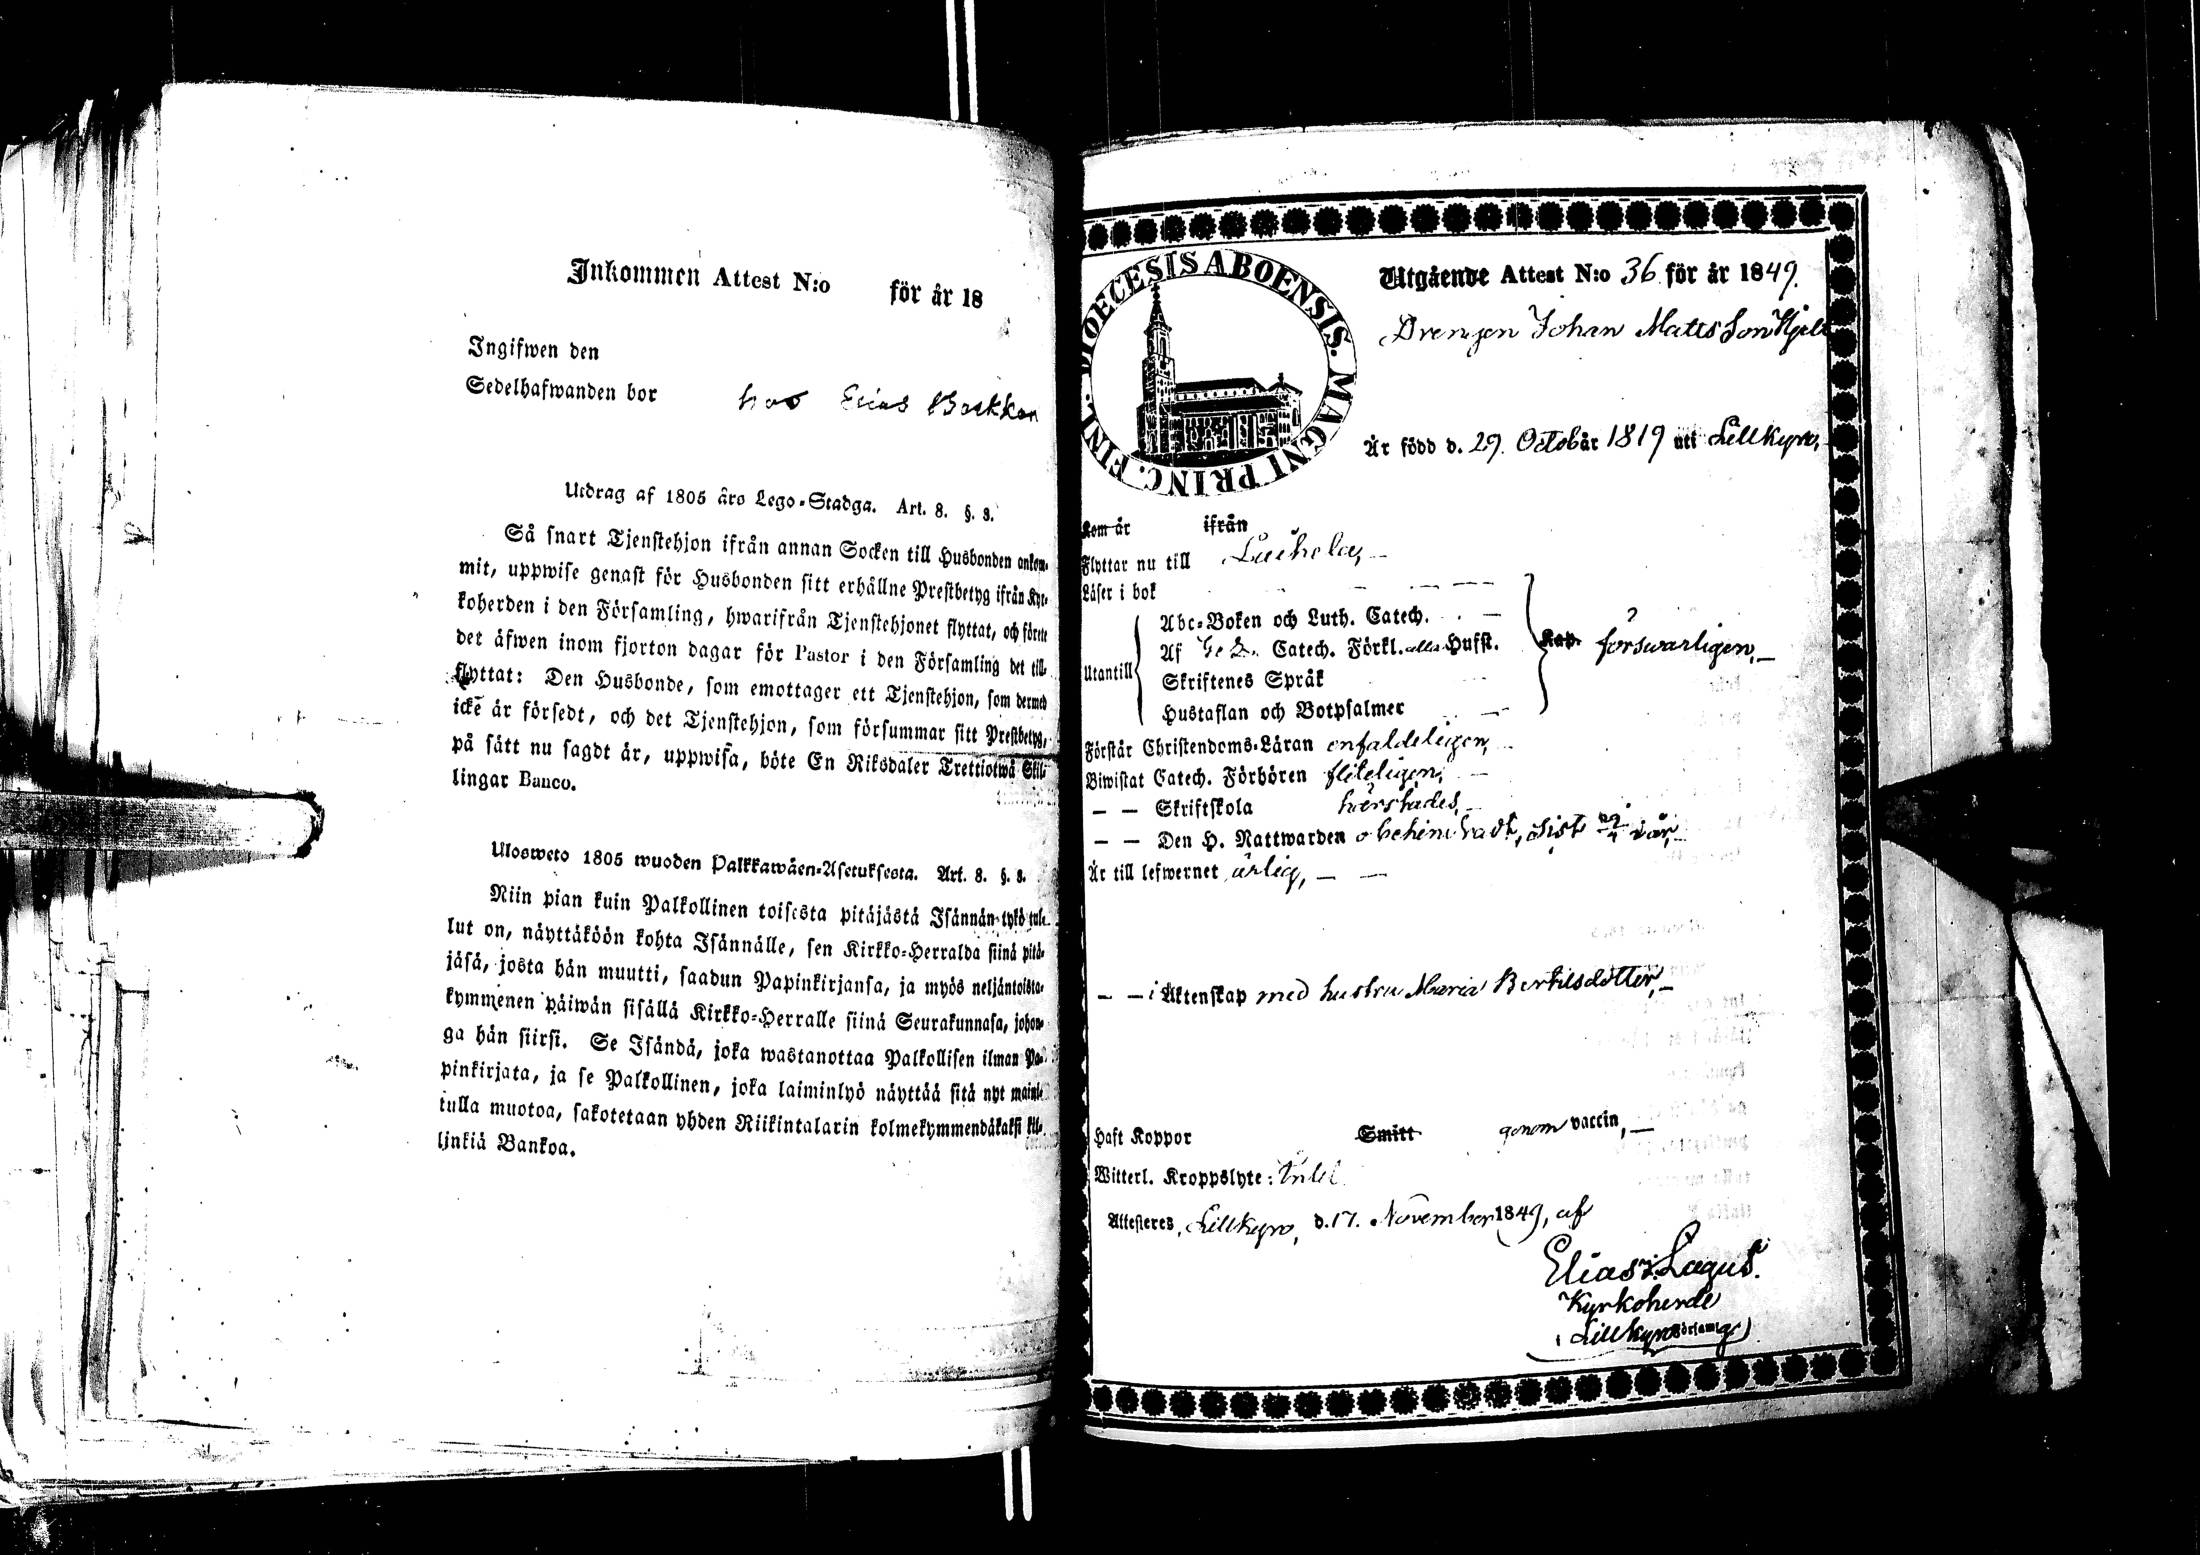 Inkommen Attest N:o för år 18
Ingifwen den
Sedelhafwanden bor hos Elias Backkan
Utdrag af 1805 års Lego-Stadga. Art. 8. §. 8.
Så snart Tjenstehjon ifrån annan Socken till Husbonden ankom-
mit, uppwise genast för Husbonden sitt erhållne Prestbetyg ifrån Kyr-
koherden i den Församling, hwarifrån Tjenstehjonet flyttat, och förete
det äfwen inom fjorton dagar för Pastor i den Församling det till-
flyttat: Den Husbonde, som emottager ett Tjenstehjon, som dermed
icke är försedt, och det Tjenstehjon, som försummar sitt Prestbetyg,
på sätt nu sagdt är, uppwisa, böte En Riksdaler Trettiotwå Skil-
lingar Banco.
Ulosweto 1805 wuoden Palkkawäen-Asetuksesta. Art. 8. §. 8.
Niin pian kuin Palkollinen toisesta pitäjästä Isännän tykö tul-
lut on, näyttäköön kohta Isännälle, sen Kirkko-Herralda siinä pitä-
jäsä, josta hän muutti, saadun Papinkirjansa, ja myös neljäntoista-
kymmenen päiwän sisällä Kirkko-Herralle siinä Seurakunnasa, johon-
ga hän siirsi. Se Isändä, joka wastanottaa Palkollisen ilman Pa-
pinkirjata, ja se Palkollinen, joka laiminlyö näyttää sitä nyt maini-
tulla muotoa, sakotetaan yhden Riikintalarin kolmekymmendäkaksi kil-
ljnkiä Bankoa.
FINL. DIOECESIS ABOENSIS. MAGNI PRINC.
Utgående Attest N:o 36 för år 1849.
Drengen Johan Matts Son Hjelt
Är född d. 29. October 1819 uti Lillkyro,
Kom år ifrån
Flyttar nu till Laihela,
Läser i bok
Abc-Boken och Luth. Catech.
Utantill Af Catech. Förkl. alla Hufst. Kap. förswarligen,
Skriftenes Språk
Hustaflan och Botpsalmer
Förstår Christendoms-Läran enfaldeligen,
Biwistat Catech. Förhören fliteligen,
— — Skriftskola härstädes,
— — Den H. Nattwarden obehindradt, sist i år,
Är till lefwernet ärlig,
— — i Äktenskap med hustru Maria Bertilsdotter,
Haft Koppor Smitt genom vaccin,
Witterl. Kroppslyte: Intet
Attesteres, Lillkyro, d. 17. November 1849, af
Elias Lagus.
Kyrkoherde
i Lillkyro Församl